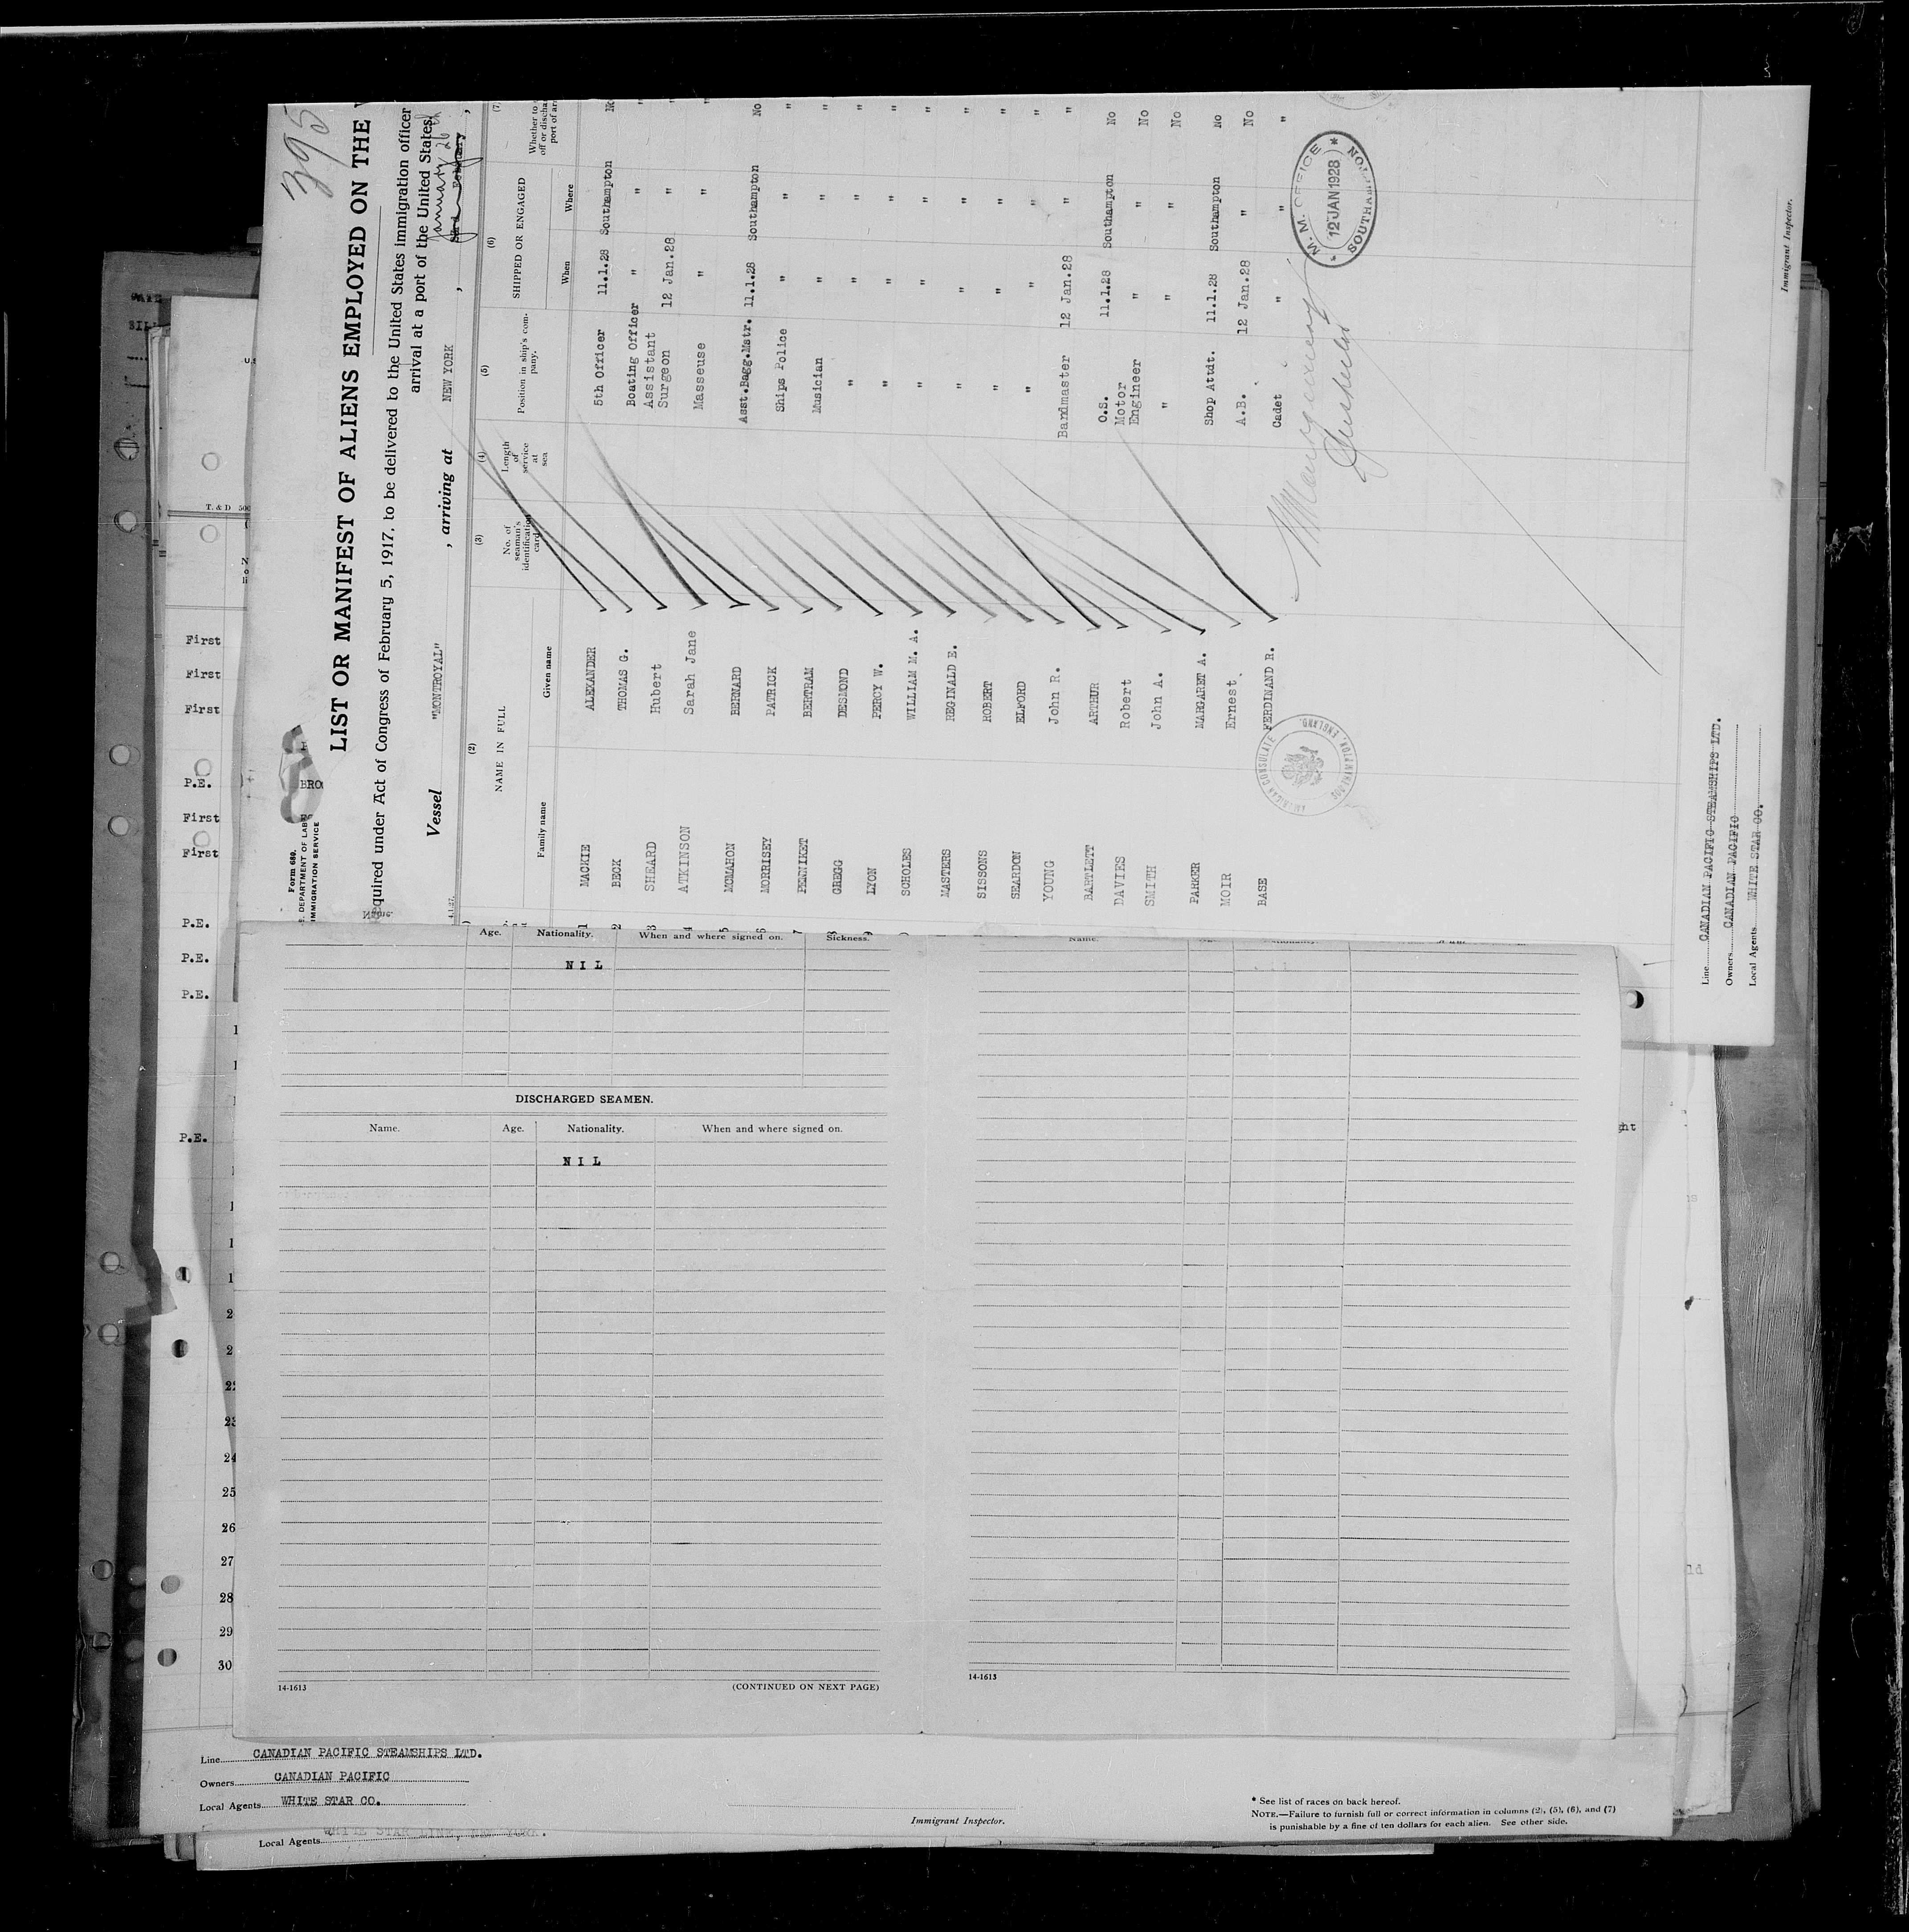 395
Form 680.
DEPARTMENT OF LABOR
IMMIGRATION SERVICE
LIST OR MANIFEST OF ALIENS EMPLOYED ON THE
equired under Act of Congress of February 5, 1917, to be delivered to the United States immigration officer
arrival at a port of the United States
January 26th
Vessel "MONTROYAL" , arriving at NEW YORK ,
(2) (3) (4) (5) (6) (7)
NAME IN FULL No. of seaman's identification card Length of service at sea Position in ship's company. SHIPPED OR ENGAGED Whether to
Family name Given name When Where
1 MACKIE ALEXANDER 5th Officer 11.1.28 Southampton No
2 BECK THOMAS G. Boating Officer " " "
3 SHEARD Hubert Assistant Surgeon 12 Jan.28 " "
4 ATKINSON Sarah Jane Masseuse " " "
5 MCMAHON BERNARD Asst.Bagg.Mstr. 11.1.28 Southampton No
6 MORRISEY PATRICK Ships Police " " "
7 PENNIKET BERTRAM Musician " " "
8 GREGG DESMOND " " " "
9 LYON PERCY W. " " " "
SCHOLES WILLIAM M. A. " " " "
MASTERS REGINALD E. " " " "
SISSONS ROBERT " " " "
SEARDON ELFORD " " " "
YOUNG John R. Bandmaster 12 Jan.28 " "
BARTLETT ARTHUR O.S. 11.1.28 Southampton No
DAVIES Robert Motor Engineer " " No
SMITH John A. " " " No
PARKER MARGARET A. Shop Attdt. 11.1.28 Southampton No
MOIR Ernest A.B. 12 Jan.28 " No
BASE FERDINAND R. Cadet " " "
M. M. OFFICE
12 JAN 1928
SOUTHAMPTON
AMERICAN CONSULATE
SOUTHAMPTON, ENGLAND.
Line CANADIAN PACIFIC STEAMSHIPS LTD.
Owners CANADIAN PACIFIC
Local Agents WHITE STAR CO.
Immigrant Inspector.
T. & D
First
First
First
P.E.
First
First
P.E.
P.E.
P.E.
P.E.
Age. Nationality. When and where signed on. Sickness.
NIL
DISCHARGED SEAMEN.
Name. Age. Nationality. When and where signed on.
NIL
24
25
26
27
28
29
30
14-1613
(CONTINUED ON NEXT PAGE)
Name.
14-1613
Line CANADIAN PACIFIC STEAMSHIPS LTD.
Owners CANADIAN PACIFIC
Local Agents WHITE STAR CO.
Immigrant Inspector.
* See list of races on back hereof.
NOTE.—Failure to furnish full or correct information in columns (2), (5), (6), and (7)
is punishable by a fine of ten dollars for each alien. See other side.
Local Agents WHITE STAR LINE, NEW YORK.